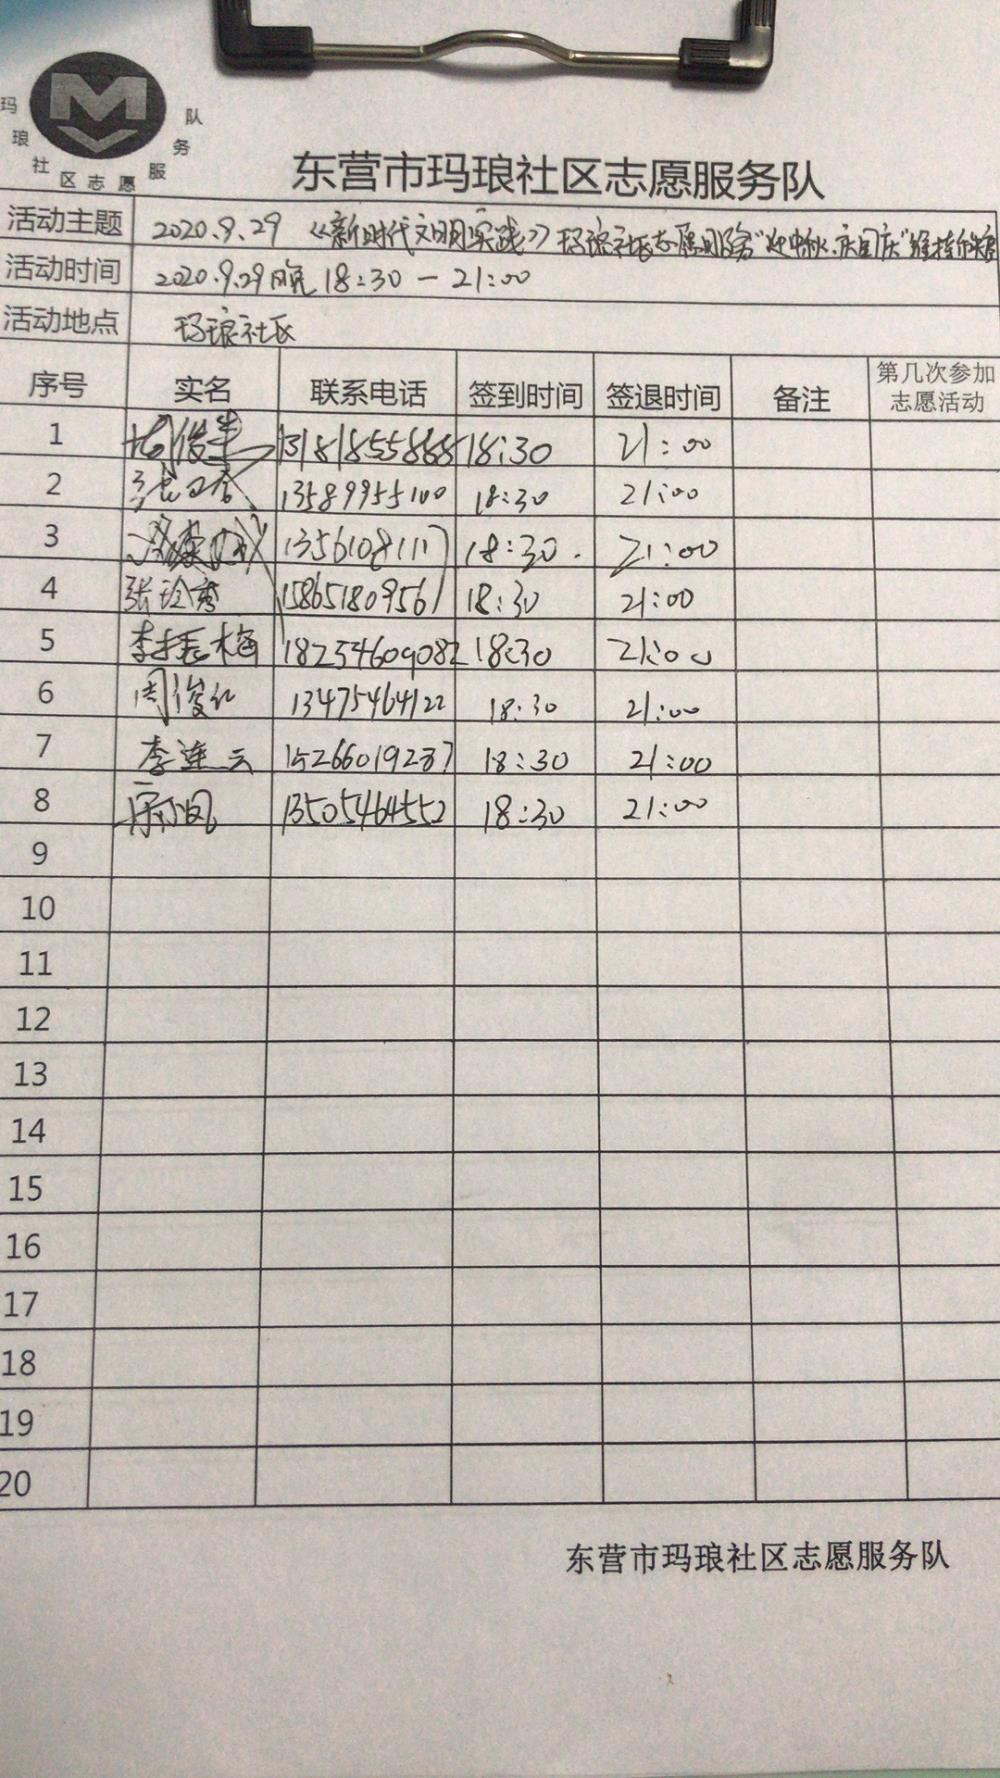 M
玛琅社区志愿服务队
东营市玛琅社区志愿服务队
活动主题 2020.9.29 《新时代文明实践》玛琅社区志愿服务"迎中秋、庆国庆"
活动时间 2020.9.29晚 18:30 — 21:00
活动地点 玛琅社区
序号 实名 联系电话 签到时间 签退时间 备注 第几次参加志愿活动
1 13181855868 18:30 21:00
2 13589955100 18:30 21:00
3 18:30. 21:00
4 张玲秀 15865180956 18:30 21:00
5 李振梅 18254609082 18:30 21:00
6 周俊红 13475464122 18:30 21:00
7 李莲云 15266019287 18:30 21:00
8 13505464552 18:30 21:00
9
10
11
12
13
14
15
16
17
18
19
20
东营市玛琅社区志愿服务队